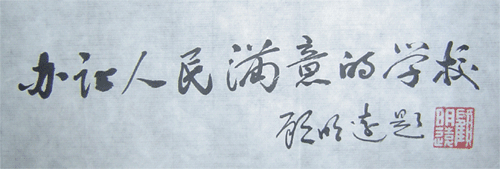 办让人民满意的学校
顾明远题
顧明遠